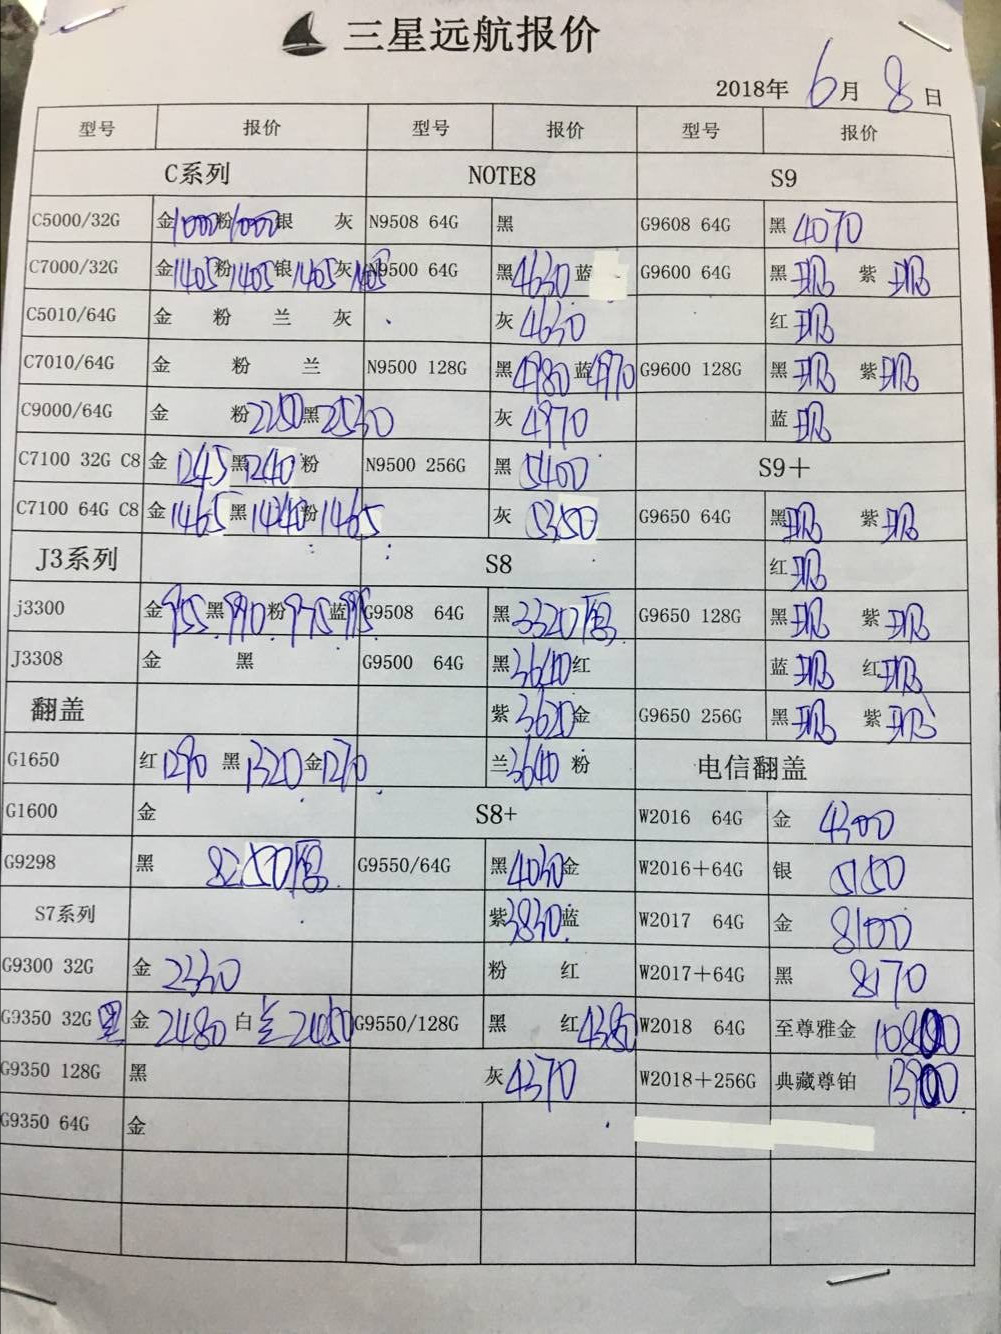 三星远航报价
2018年 6月 8日
型号 报价 型号 报价 型号 报价
C系列 NOTE8 S9
C5000/32G 金1000粉1000银 灰 N9508 64G 黑 G9608 64G 黑 4070
C7000/32G 金1405粉1405银1405灰1405 N9500 64G 黑4630蓝 G9600 64G 黑现 紫现
C5010/64G 金 粉 兰 灰 灰4630 红现
C7010/64G 金 粉 兰 N9500 128G 黑4980蓝4970 G9600 128G 黑现 紫现
C9000/64G 金 粉2250黑2530 灰4970 蓝现
C7100 32G C8 金1245黑1240粉 N9500 256G 黑5400 S9＋
C7100 64G C8 金1465黑1440粉1465 灰5350 G9650 64G 黑现 紫现
J3系列 S8 红现
j3300 金955黑990粉975蓝995 G9508 64G 黑3320 G9650 128G 黑现 紫现
J3308 金 黑 G9500 64G 黑3640红 蓝现 红现
翻盖 紫3620金 G9650 256G 黑现 紫现
G1650 红1290 黑1320金1270 兰3640粉 电信翻盖
G1600 金 S8+ W2016 64G 金 4300
G9298 黑 8250 G9550/64G 黑4030金 W2016＋64G 银 5150
S7系列 紫3830蓝 W2017 64G 金 8100
G9300 32G 金2330 粉 红 W2017＋64G 黑 8170
G9350 32G 黑 金2480白 兰 2450 G9550/128G 黑 红4380 W2018 64G 至尊雅金 10800
G9350 128G 黑 灰4370 W2018＋256G 典藏尊铂 13900
G9350 64G 金